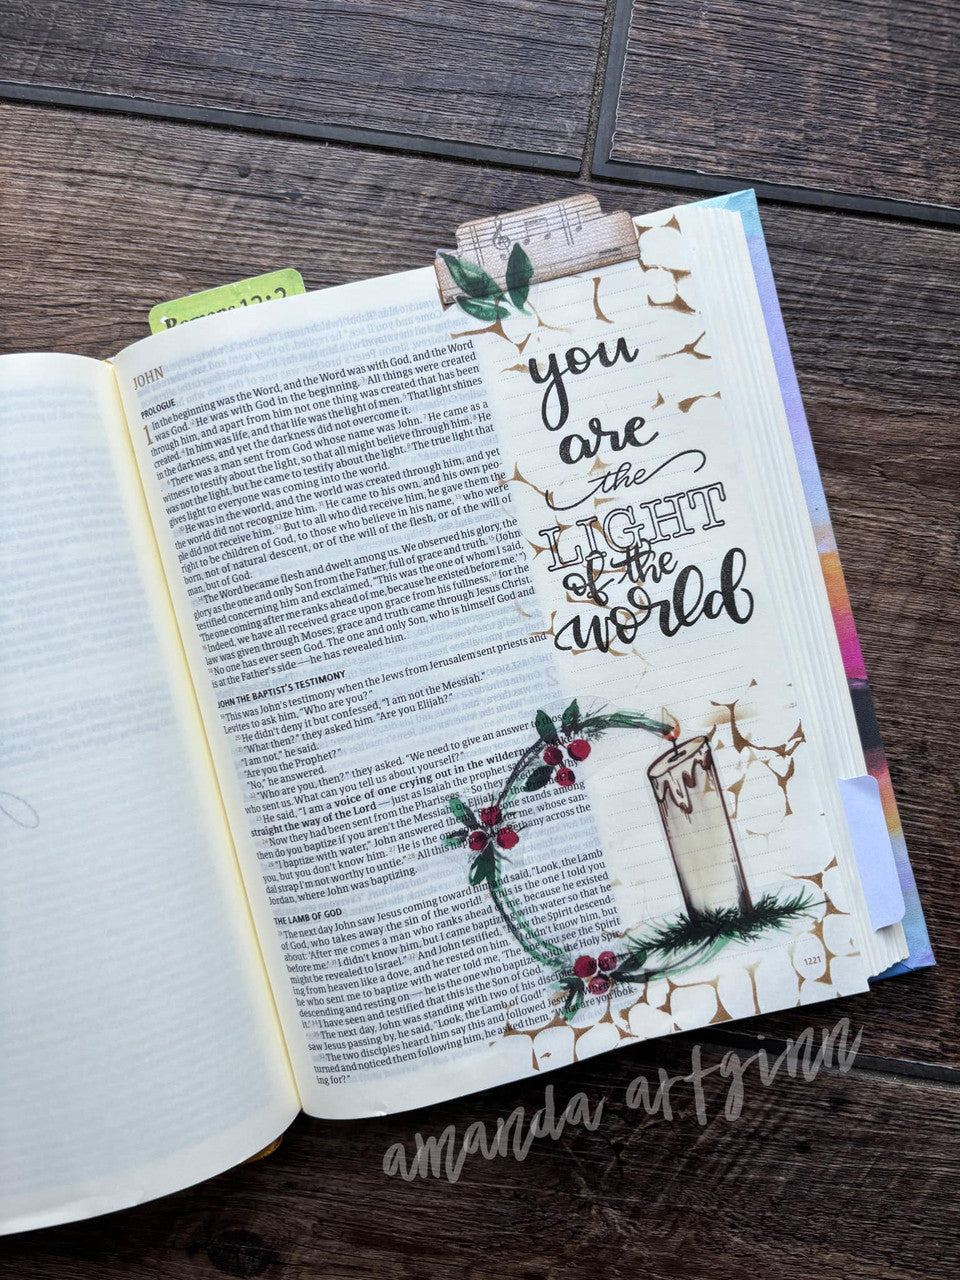 Romans 12:2
JOHN
PROLOGUE
1 In the beginning was the Word, and the Word was with God, and the Word
was God. 2 He was with God in the beginning. 3 All things were created
through him, and apart from him not one thing was created that has been
created. 4 In him was life, and that life was the light of men. 5 That light shines
in the darkness, and yet the darkness did not overcome it.
6 There was a man sent from God whose name was John. 7 He came as a
witness to testify about the light, so that all might believe through him. 8 He
was not the light, but he came to testify about the light. 9 The true light that
gives light to everyone was coming into the world.
10 He was in the world, and the world was created through him, and yet
the world did not recognize him. 11 He came to his own, and his own peo-
ple did not receive him. 12 But to all who did receive him, he gave them the
right to be children of God, to those who believe in his name, 13 who were
born, not of natural descent, or of the will of the flesh, or of the will of
man, but of God.
14 The Word became flesh and dwelt among us. We observed his glory, the
glory as the one and only Son from the Father, full of grace and truth. 15 (John
testified concerning him and exclaimed, "This was the one of whom I said,
'The one coming after me ranks ahead of me, because he existed before me.'")
16 Indeed, we have all received grace upon grace from his fullness, 17 for the
law was given through Moses; grace and truth came through Jesus Christ.
18 No one has ever seen God. The one and only Son, who is himself God and
is at the Father's side — he has revealed him.
JOHN THE BAPTIST'S TESTIMONY
19 This was John's testimony when the Jews from Jerusalem sent priests and
Levites to ask him, "Who are you?"
20 He didn't deny it but confessed, "I am not the Messiah."
21 "What then?" they asked him. "Are you Elijah?"
"I am not," he said.
"Are you the Prophet?"
"No," he answered.
22 "Who are you, then?" they asked. "We need to give an answer to those
who sent us. What can you tell us about yourself?"
23 He said, "I am a voice of one crying out in the wilderness: Make
straight the way of the Lord — just as Isaiah the prophet said."
24 Now they had been sent from the Pharisees. 25 So they asked him, "Why
then do you baptize if you aren't the Messiah, or Elijah, or the Prophet?"
26 "I baptize with water," John answered them. "Someone stands among
you, but you don't know him. 27 He is the one coming after me, whose san-
dal strap I'm not worthy to untie." 28 All this happened in Bethany across the
Jordan, where John was baptizing.
THE LAMB OF GOD
29 The next day John saw Jesus coming toward him and said, "Look, the Lamb
of God, who takes away the sin of the world! 30 This is the one I told you
about: 'After me comes a man who ranks ahead of me, because he existed
before me.' 31 I didn't know him, but I came baptizing with water so that he
might be revealed to Israel." 32 And John testified, "I saw the Spirit descend-
ing from heaven like a dove, and he rested on him. 33 I didn't know him, but
he who sent me to baptize with water told me, 'The one you see the Spirit
descending and resting on — he is the one who baptizes with the Holy Spir-
it.' 34 I have seen and testified that this is the Son of God."
35 The next day, John was standing with two of his disciples. 36 When he
saw Jesus passing by, he said, "Look, the Lamb of God!"
37 The two disciples heard him say this and followed Jesus. 38 When Jesus
turned and noticed them following him, he asked them, "What are you look-
ing for?"
you
are
the
LIGHT
of the
world
1221
amanda artginn